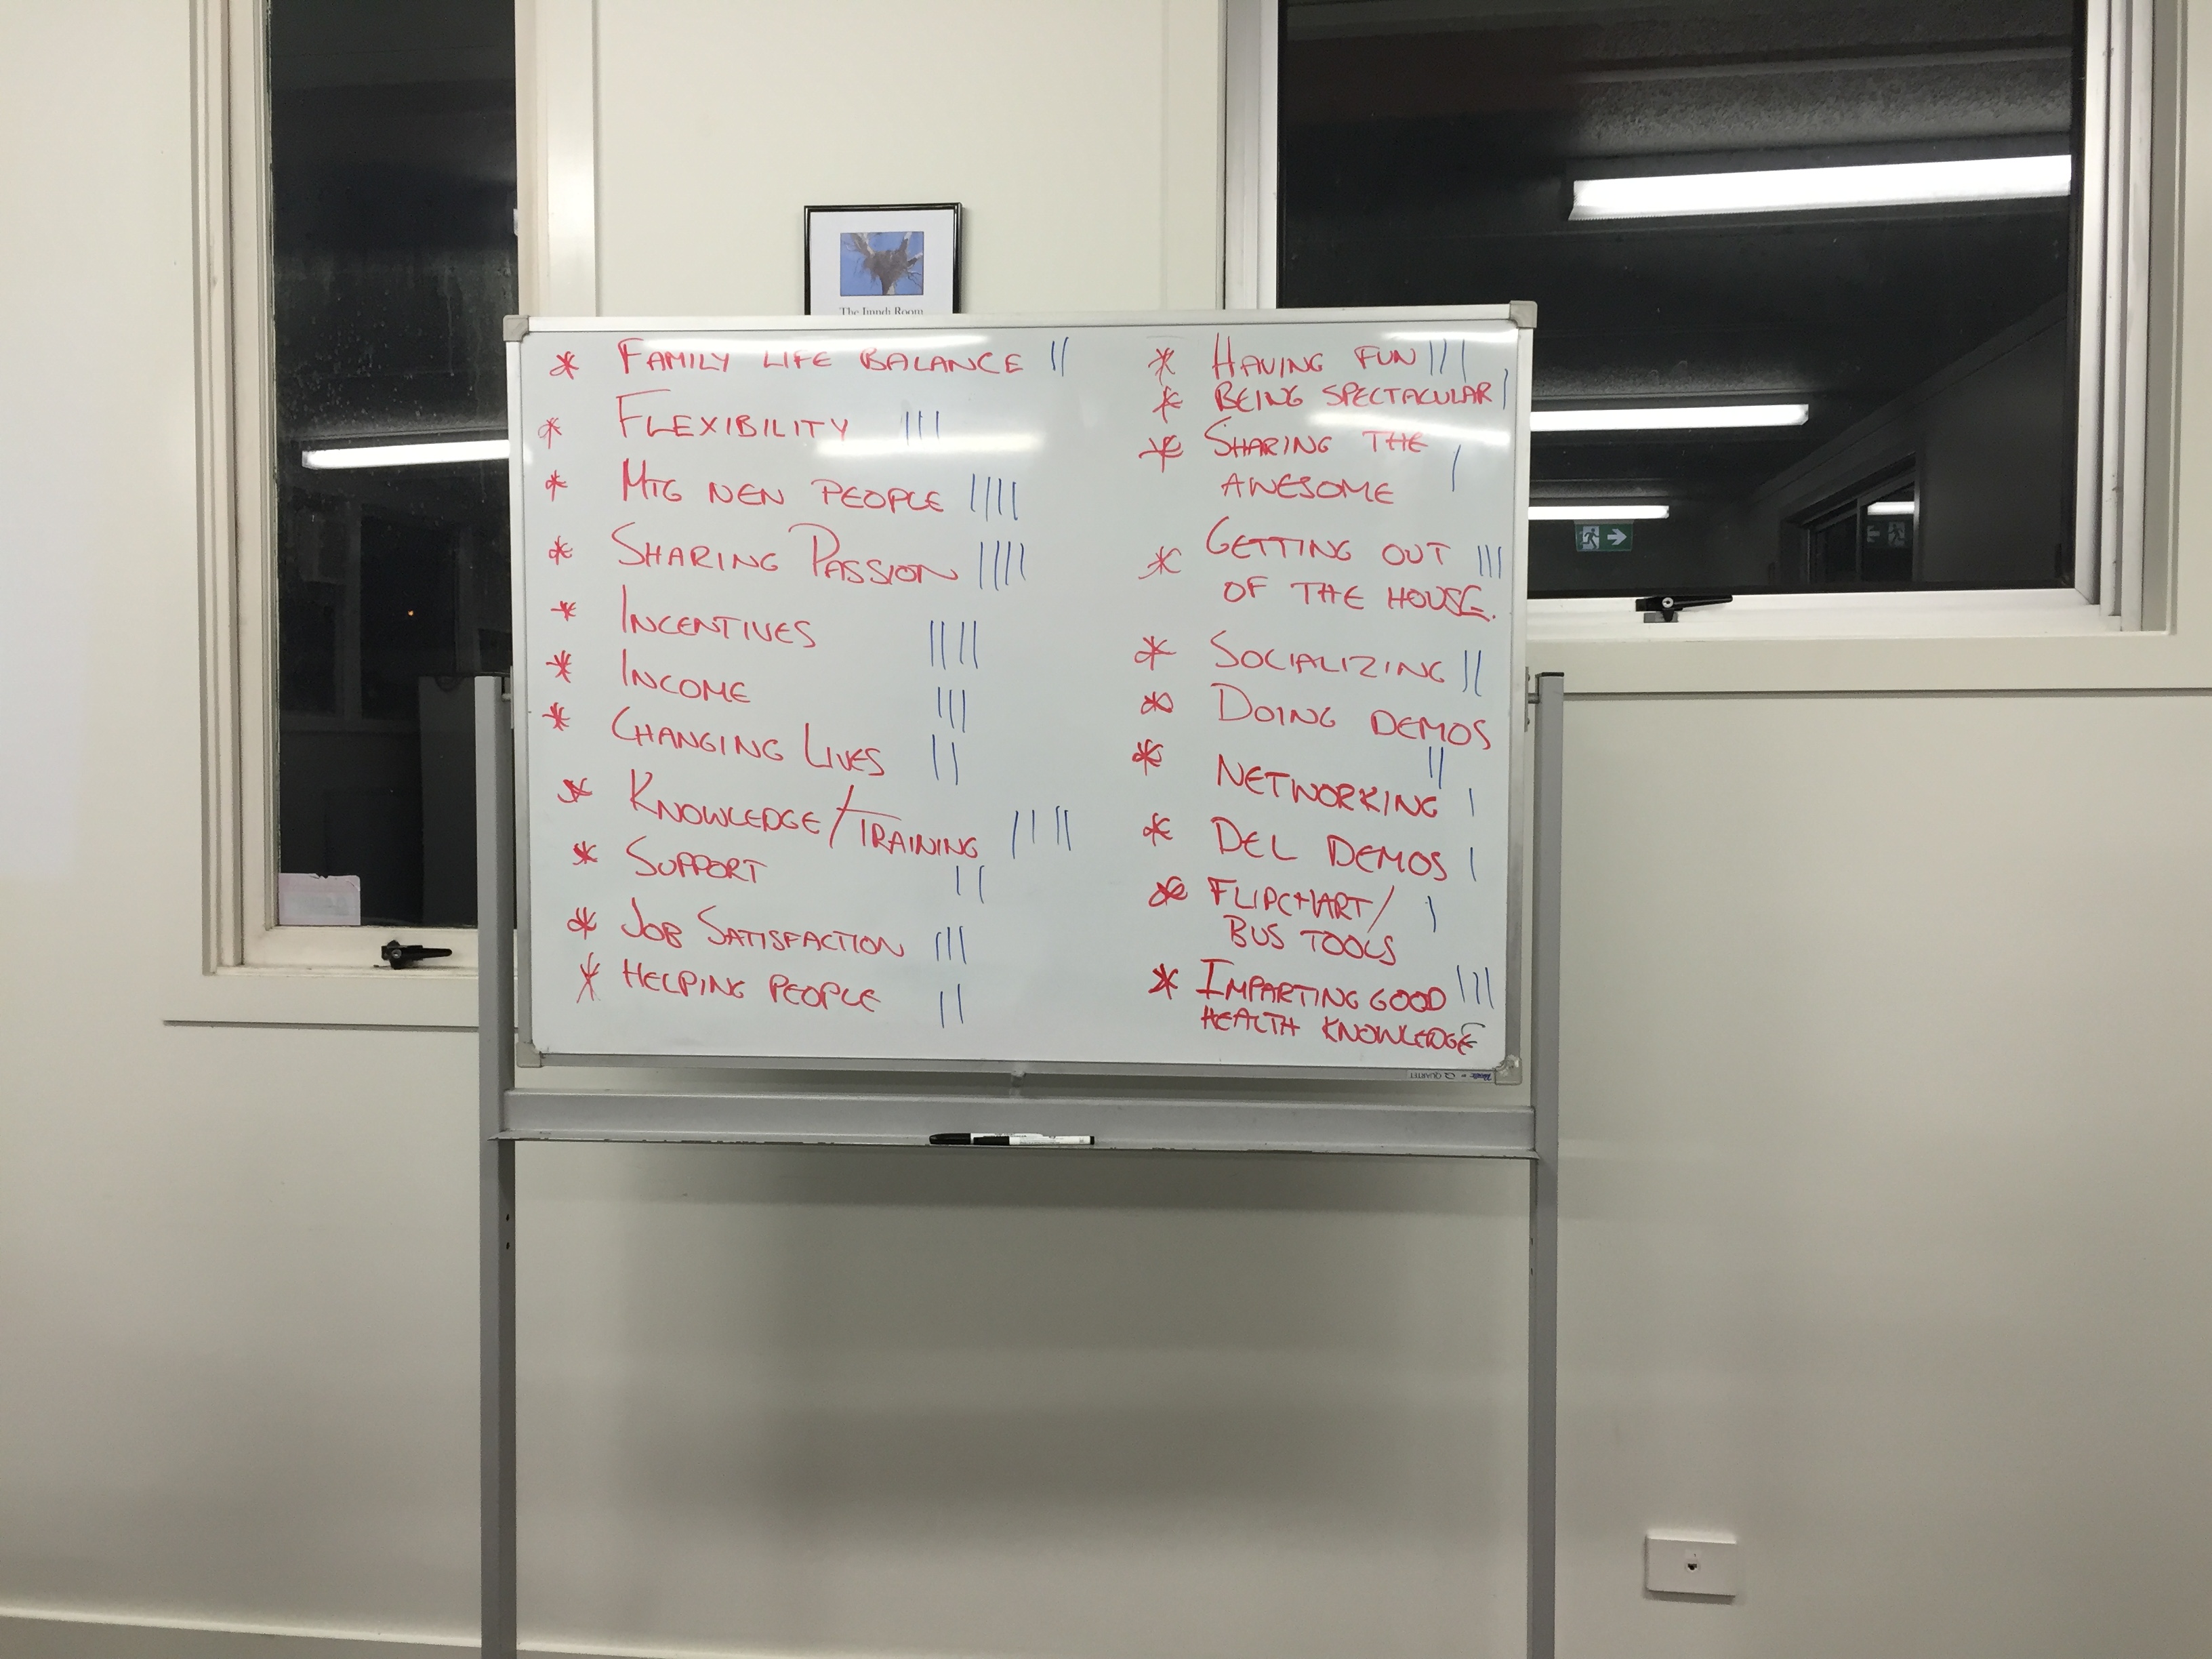 The Imndi Room
* FAMILY LIFE BALANCE ||
* FLEXIBILITY |||
* MTG NEW PEOPLE ||||
* SHARING PASSION ||||
* INCENTIVES ||||
* INCOME |||
* CHANGING LIVES ||
* KNOWLEDGE/TRAINING ||||
* SUPPORT ||
* JOB SATISFACTION |||
* HELPING PEOPLE ||
* HAVING FUN |||
* BEING SPECTACULAR |
* SHARING THE |
AWESOME
* GETTING OUT |||
OF THE HOUSE.
* SOCIALIZING ||
* DOING DEMOS
||
* NETWORKING |
* DEL DEMOS |
* FLIPCHART/ |
BUS TOOLS
* IMPARTING GOOD |||
HEALTH KNOWLEDGE
QUARTET